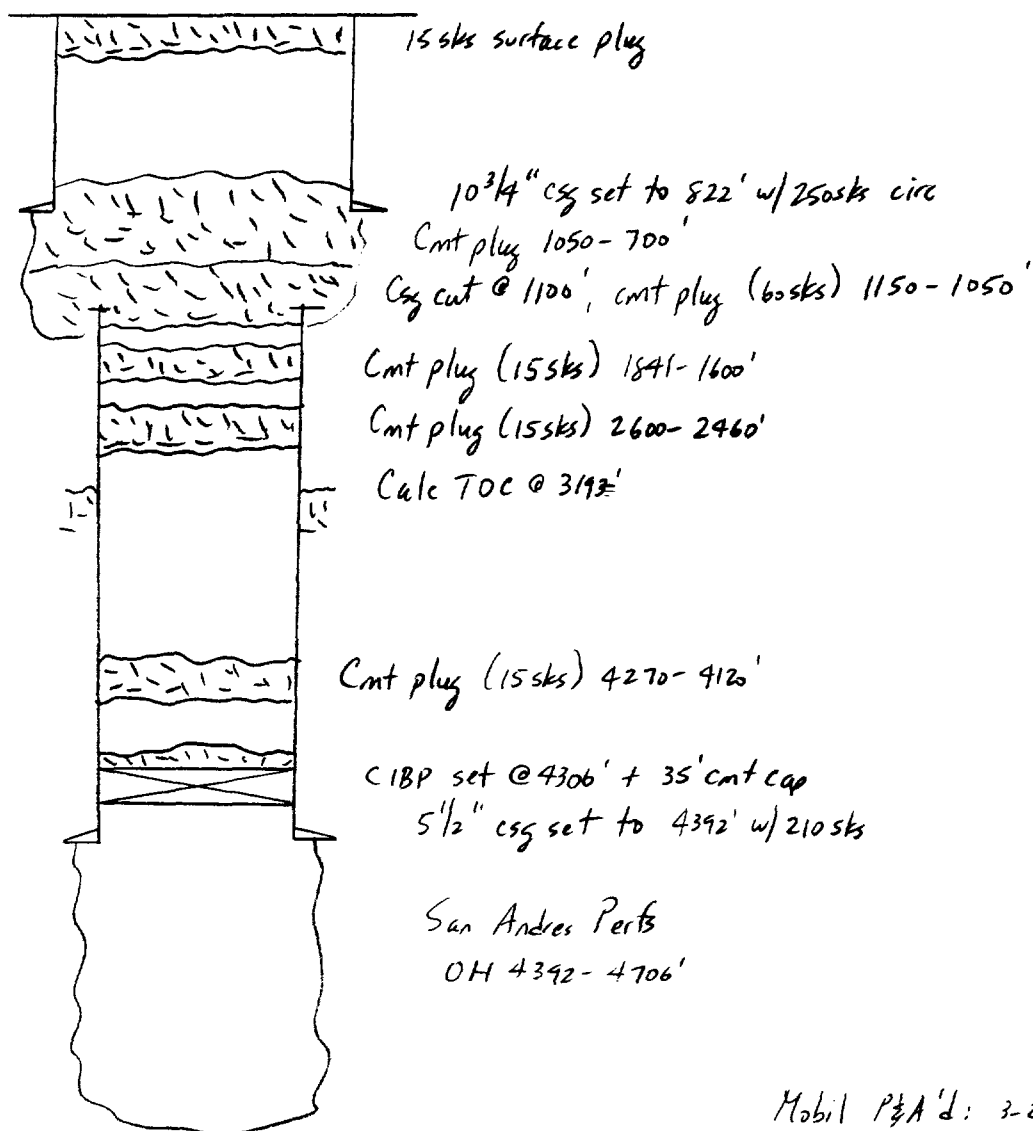 15 sks surface plug
10 3/4" csg set to 822' w/250sks circ
Cmt plug 1050-700'
Csg cut @ 1100', cmt plug (60sks) 1150-1050'
Cmt plug (15sks) 1841-1600'
Cmt plug (15sks) 2600-2460'
Calc TOC @ 3193'
Cmt plug (15sks) 4270-4120'
CIBP set @ 4306' + 35' cmt cap
5 1/2" csg set to 4392' w/210sks
San Andres Perfs
OH 4392-4706'
Mobil P&A'd: 3-2